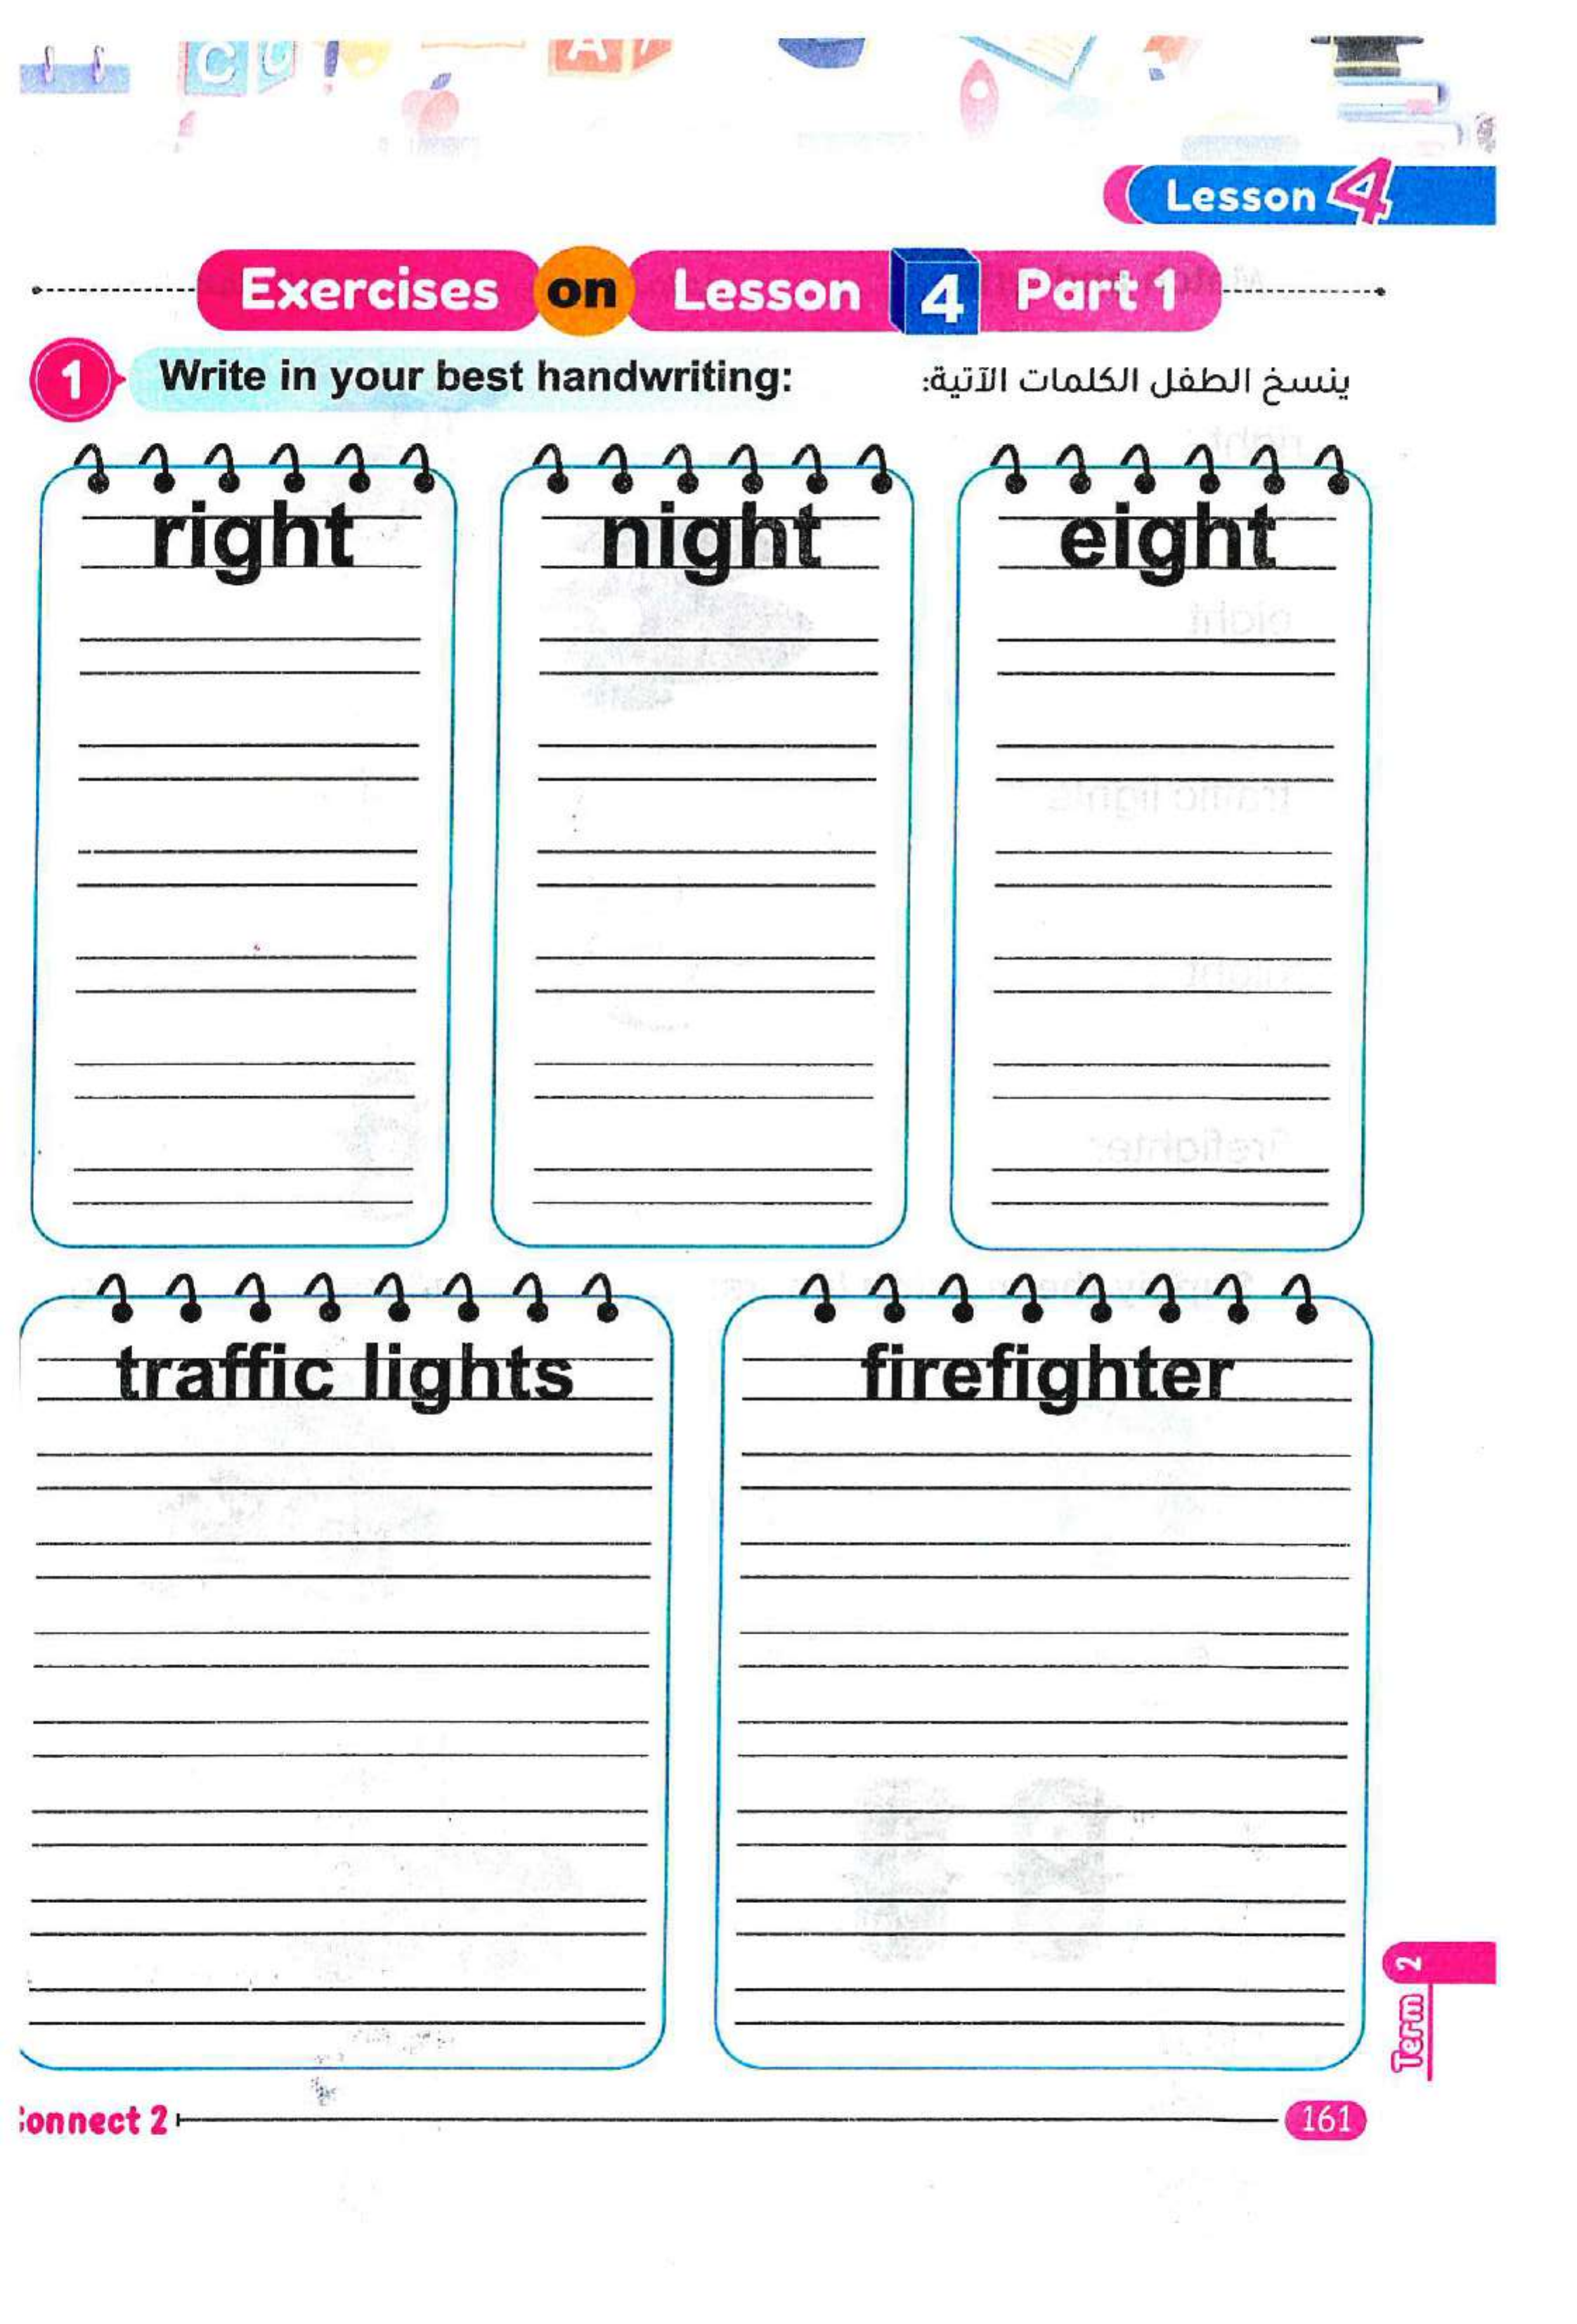 Lesson 4
Exercises on Lesson 4 Part 1
1 Write in your best handwriting: ينسخ الطفل الكلمات الآتية:
right night eight
traffic lights firefighter
Term 2
onnect 2 161